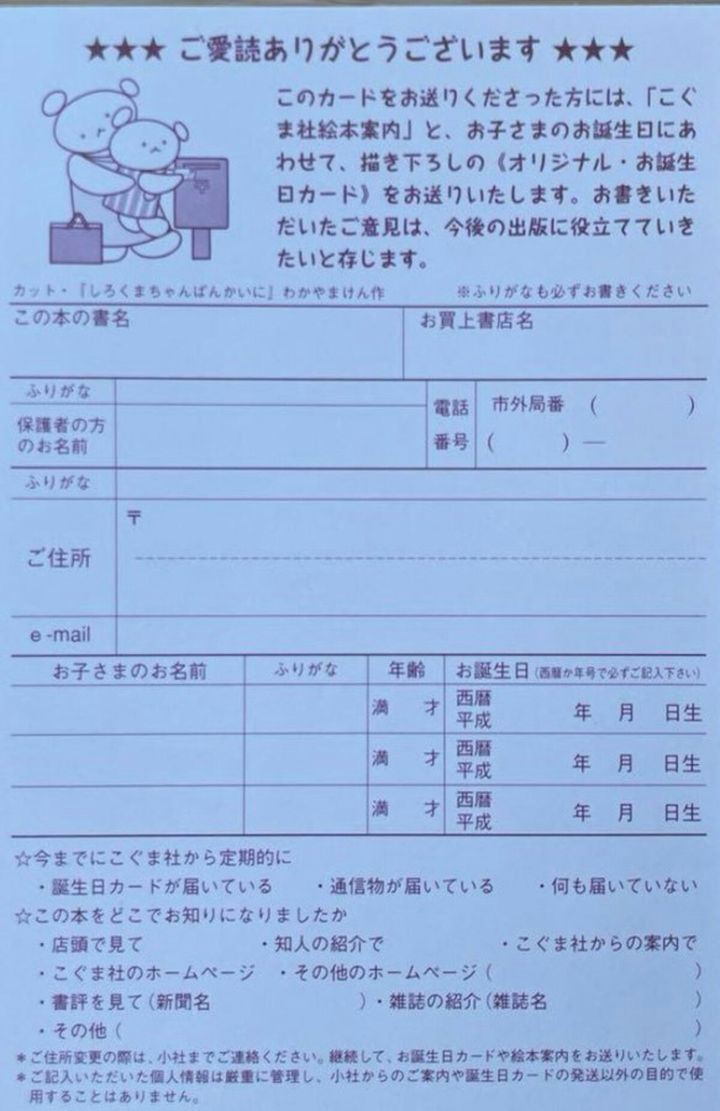 ★★★ ご愛読ありがとうございます ★★★
このカードをお送りくださった方には、「こぐ
ま社絵本案内」と、お子さまのお誕生日にあ
わせて、描き下ろしの《オリジナル・お誕生
日カード》をお送りいたします。お書きいた
だいたご意見は、今後の出版に役立てていき
たいと存じます。
カット・『しろくまちゃんぱんかいに』わかやまけん作 ※ふりがなも必ずお書きください
この本の書名 お買上書店名
ふりがな
保護者の方
のお名前
電話 市外局番 ( )
番号 ( ) ―
ふりがな
ご住所 〒
e-mail
お子さまのお名前 ふりがな 年齢 お誕生日(西暦か年号で必ずご記入下さい)
満 才 西暦
平成 年 月 日生
満 才 西暦
平成 年 月 日生
満 才 西暦
平成 年 月 日生
☆今までにこぐま社から定期的に
・誕生日カードが届いている ・通信物が届いている ・何も届いていない
☆この本をどこでお知りになりましたか
・店頭で見て ・知人の紹介で ・こぐま社からの案内で
・こぐま社のホームページ ・その他のホームページ( )
・書評を見て(新聞名 )・雑誌の紹介(雑誌名 )
・その他( )
＊ご住所変更の際は、小社までご連絡ください。継続して、お誕生日カードや絵本案内をお送りいたします。
＊ご記入いただいた個人情報は厳重に管理し、小社からのご案内や誕生日カードの発送以外の目的で使
用することはありません。